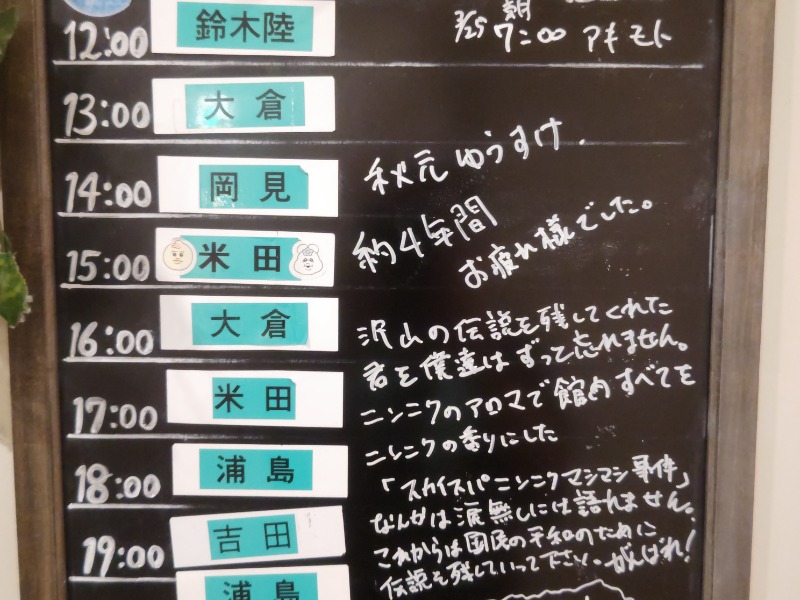 12:00 鈴木陸
3/25 朝
7:00 アキモト
13:00 大倉
14:00 岡見
15:00 米田
16:00 大倉
17:00 米田
18:00 浦島
19:00 吉田
浦島
秋元ゆうすけ.
約4年間
お疲れ様でした。
沢山の伝説を残してくれた
君を僕達はずって忘れません。
ニンニクのアロマで館内すべてを
ニンニクの香りにした
「スカイスパニンニクマシマシ事件」
なんかは涙無しには語れません。
これからは国民の平和のために
伝説を残していって下さい。がんばれ!